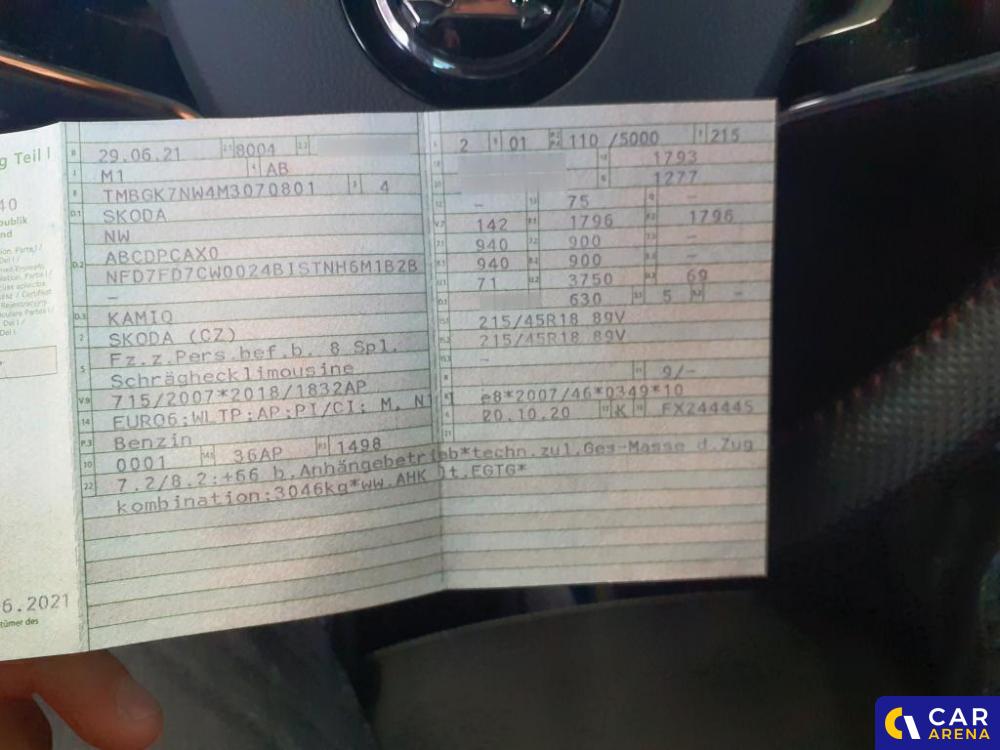 g Teil I
40
publik
nd
6.2021
tümer des
B 29.06.21 2.1 8004 2.2
J M1 4 AB
E TMBGK7NW4M3070801 3 4
D.1 SKODA
NW
D.2 ABCDPCAX0
NFD7FD7CW0024BISTNH6M1B2B
–
D.3 KAMIQ
2 SKODA (CZ)
5 Fz.z.Pers.bef.b. 8 Spl.
Schräghecklimousine
V.9 715/2007*2018/1832AP
14 EURO6;WLTP;AP;PI/CI; M, N1
P.3 Benzin
10 0001 14.1 36AP P.1 1498
22 7.2/8.2:+66 b.Anhängebetrieb*techn.zul.Ges-Masse d.Zug
kombination:3046kg*ww.AHK lt.EGTG*
L 2 9 01 P.2 P.4 110 /5000 T 215
18 1793
G 1277
12 – 13 75 Q –
V.7 142 F.1 1796 F.2 1796
7.1 940 7.2 900 7.3 –
8.1 940 8.2 900 8.3 –
U.1 71 U.2 3750 U.3 69
O.1 O.2 630 S.1 5 S.2 –
15.1 215/45R18 89V
15.2 215/45R18 89V
15.3 –
R 11 9/–
K e8*2007/46*0349*10
6 20.10.20 17 K 16 FX244445
21
CAR
ARENA